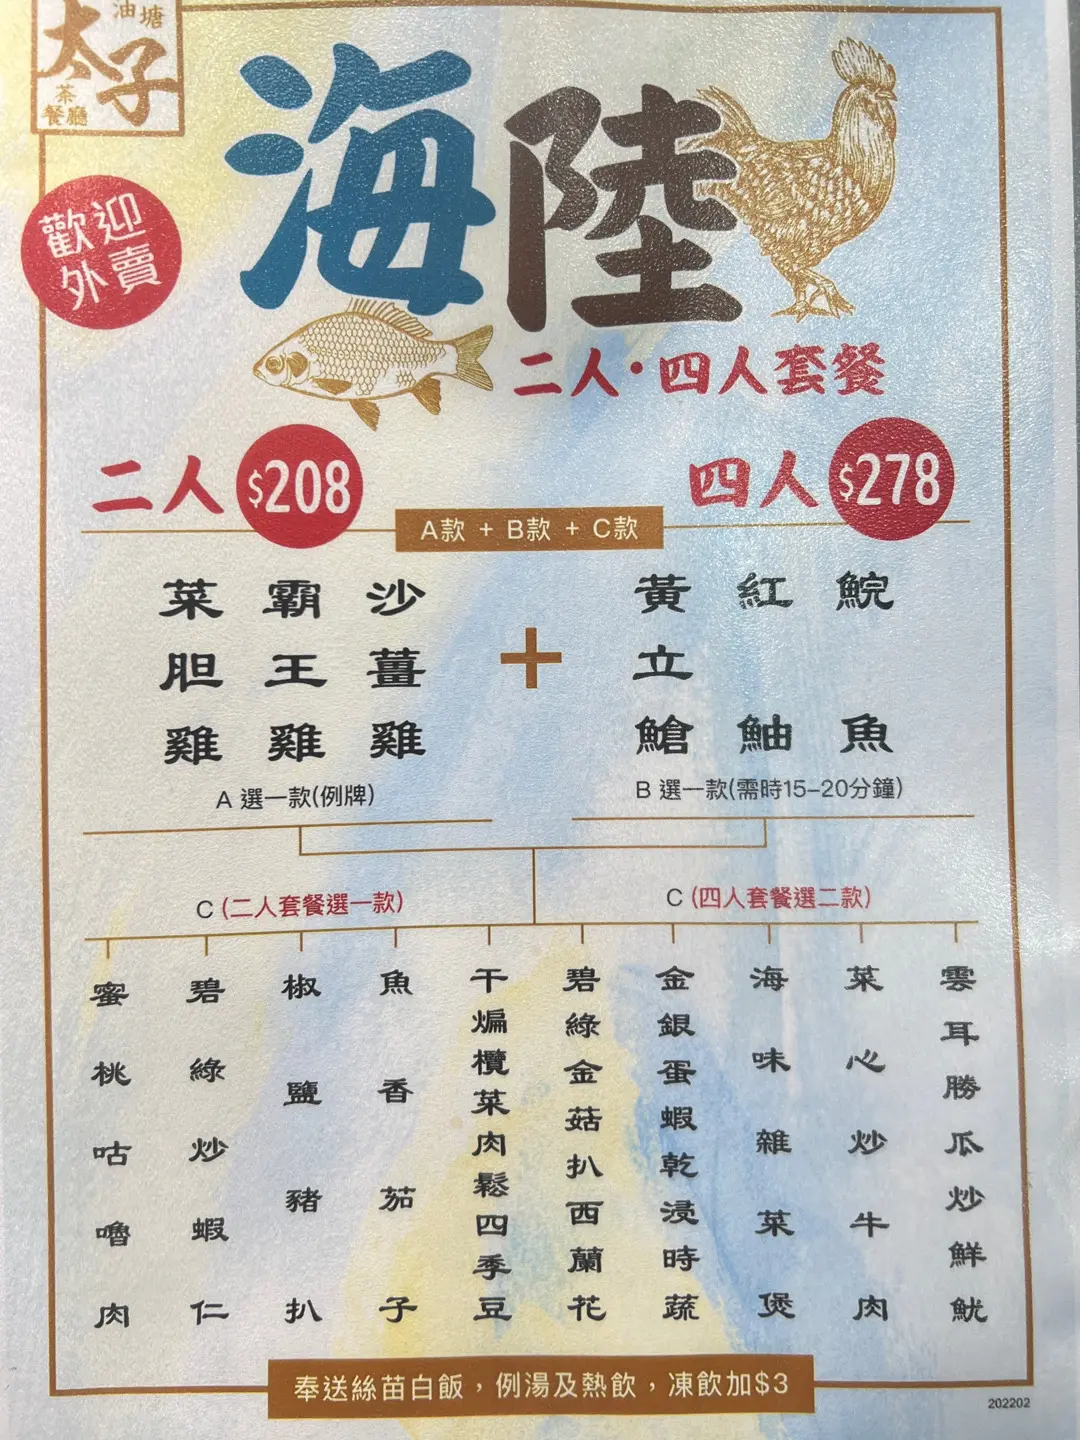 油塘
太子
茶餐廳
歡迎
外賣
海陸
二人·四人套餐
二人 $208
四人 $278
A款 + B款 + C款
菜胆雞
霸王雞
沙薑雞
A 選一款(例牌)
+
黃立鯧
紅鮋
鯇魚
B 選一款(需時15-20分鐘)
C (二人套餐選一款)
C (四人套餐選二款)
蜜桃咕嚕肉
碧綠炒蝦仁
椒鹽豬扒
魚香茄子
干煸欖菜肉鬆四季豆
碧綠金菇扒西蘭花
金銀蛋蝦乾浸時蔬
海味雜菜煲
菜心炒牛肉
雲耳勝瓜炒鮮魷
奉送絲苗白飯，例湯及熱飲，凍飲加$3
202202